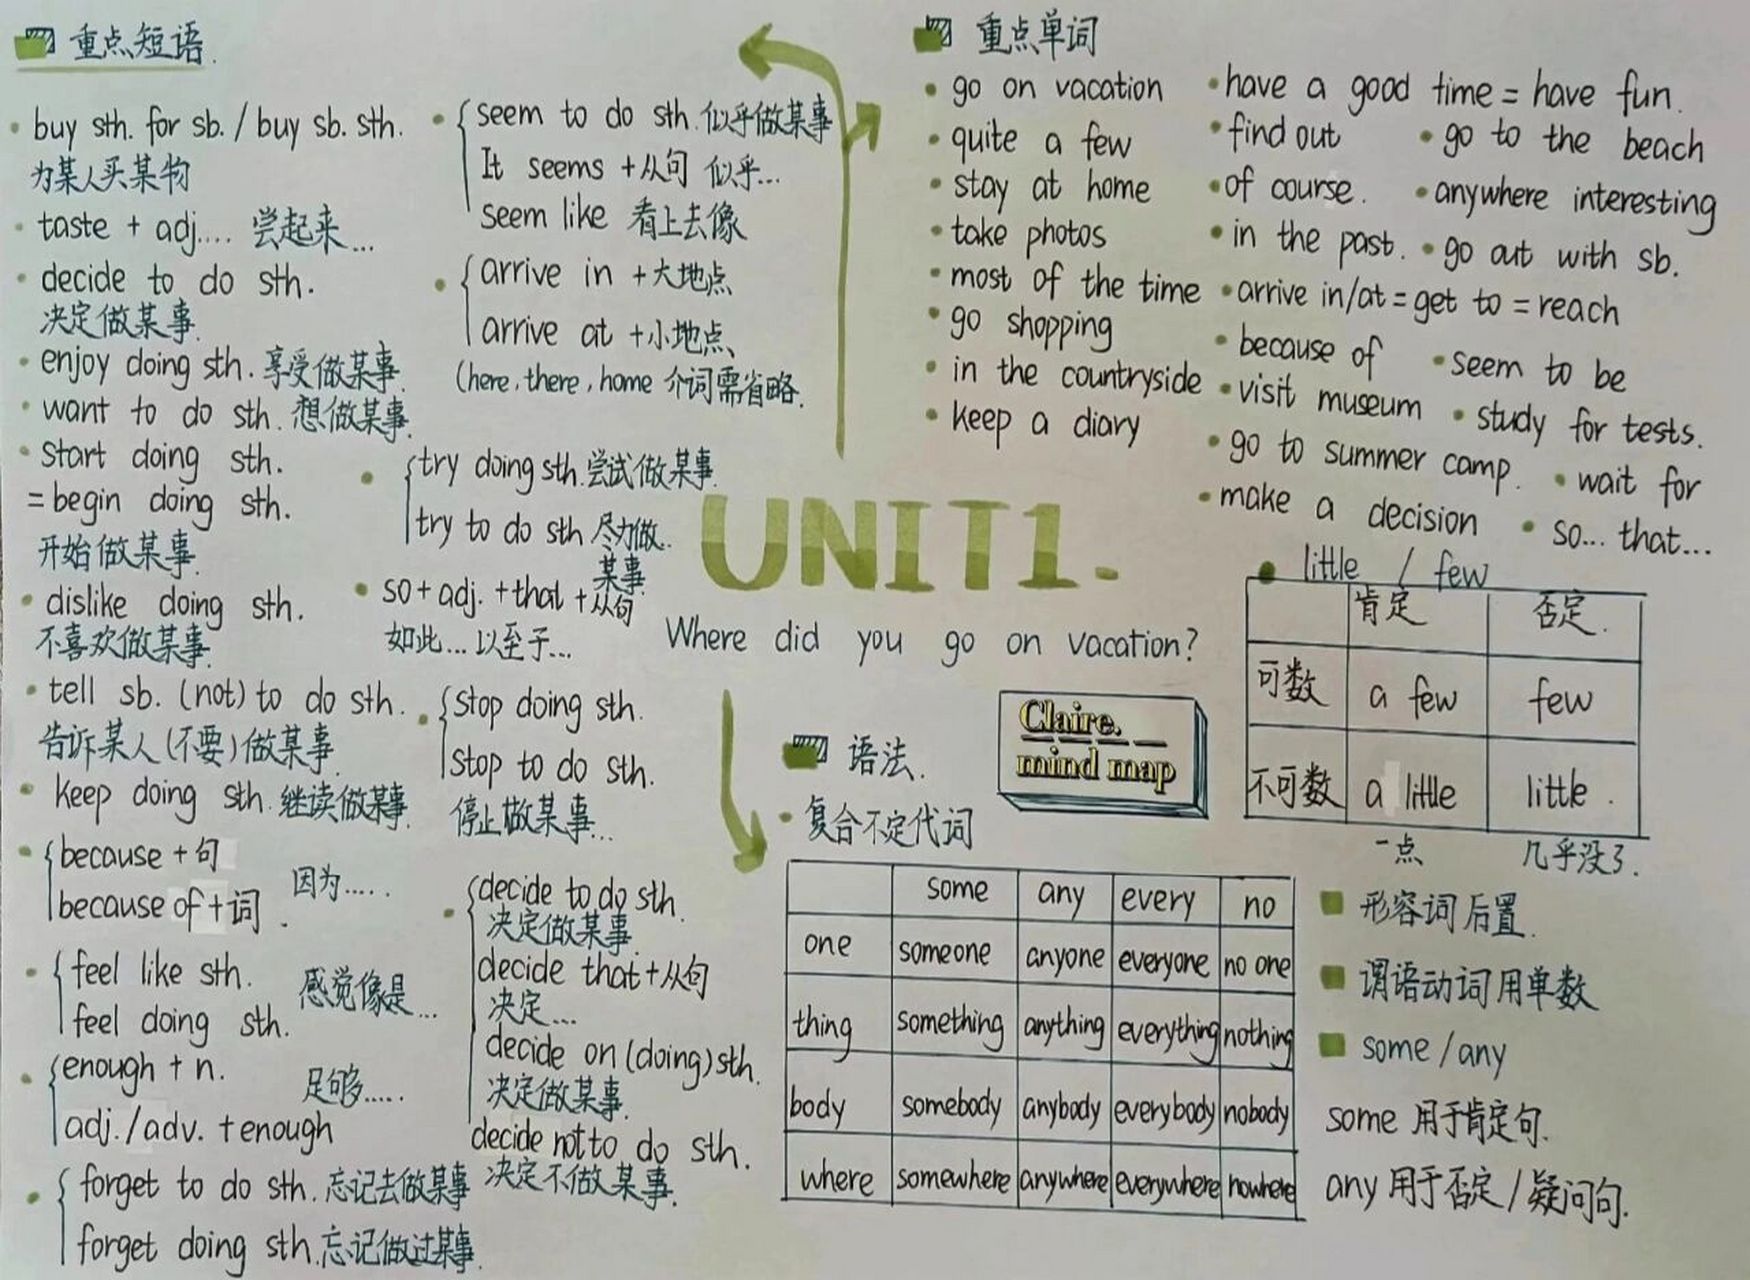 重点短语.
buy sth. for sb. / buy sb. sth.
为某人买某物
taste + adj.... 尝起来...
decide to do sth.
决定做某事.
enjoy doing sth. 享受做某事.
want to do sth. 想做某事.
start doing sth.
= begin doing sth.
开始做某事.
dislike doing sth.
不喜欢做某事.
tell sb. (not) to do sth.
告诉某人(不要)做某事.
keep doing sth. 继续做某事.
because + 句
because of + 词
因为.....
feel like sth.
feel doing sth.
感觉像是...
enough + n.
adj./adv. + enough
足够.....
forget to do sth. 忘记去做某事
forget doing sth. 忘记做过某事.
seem to do sth. 似乎做某事
It seems + 从句 似乎...
seem like 看上去像
arrive in + 大地点
arrive at + 小地点
(here, there, home 介词需省略.
try doing sth. 尝试做某事.
try to do sth 尽力做.
某事
so + adj. + that + 从句
如此... 以至于...
stop doing sth.
stop to do sth.
停止做某事...
decide to do sth.
决定做某事.
decide that + 从句
决定...
decide on (doing) sth.
决定做某事.
decide not to do sth.
决定不做某事.
UNIT1.
Where did you go on vacation?
Claire.
mind map
重点单词
go on vacation
quite a few
stay at home
take photos
most of the time
go shopping
in the countryside
keep a diary
have a good time = have fun.
find out
go to the beach
of course.
anywhere interesting
in the past.
go out with sb.
arrive in/at = get to = reach
because of
seem to be
visit museum
study for tests.
go to summer camp.
wait for
make a decision
so... that...
little / few
肯定 否定.
可数 a few few
不可数 a little little.
一点 几乎没了.
语法.
复合不定代词
some any every no
one someone anyone everyone no one
thing something anything everything nothing
body somebody anybody everybody nobody
where somewhere anywhere everywhere nowhere
形容词后置.
谓语动词用单数
some / any
some 用于肯定句.
any 用于否定 / 疑问句.